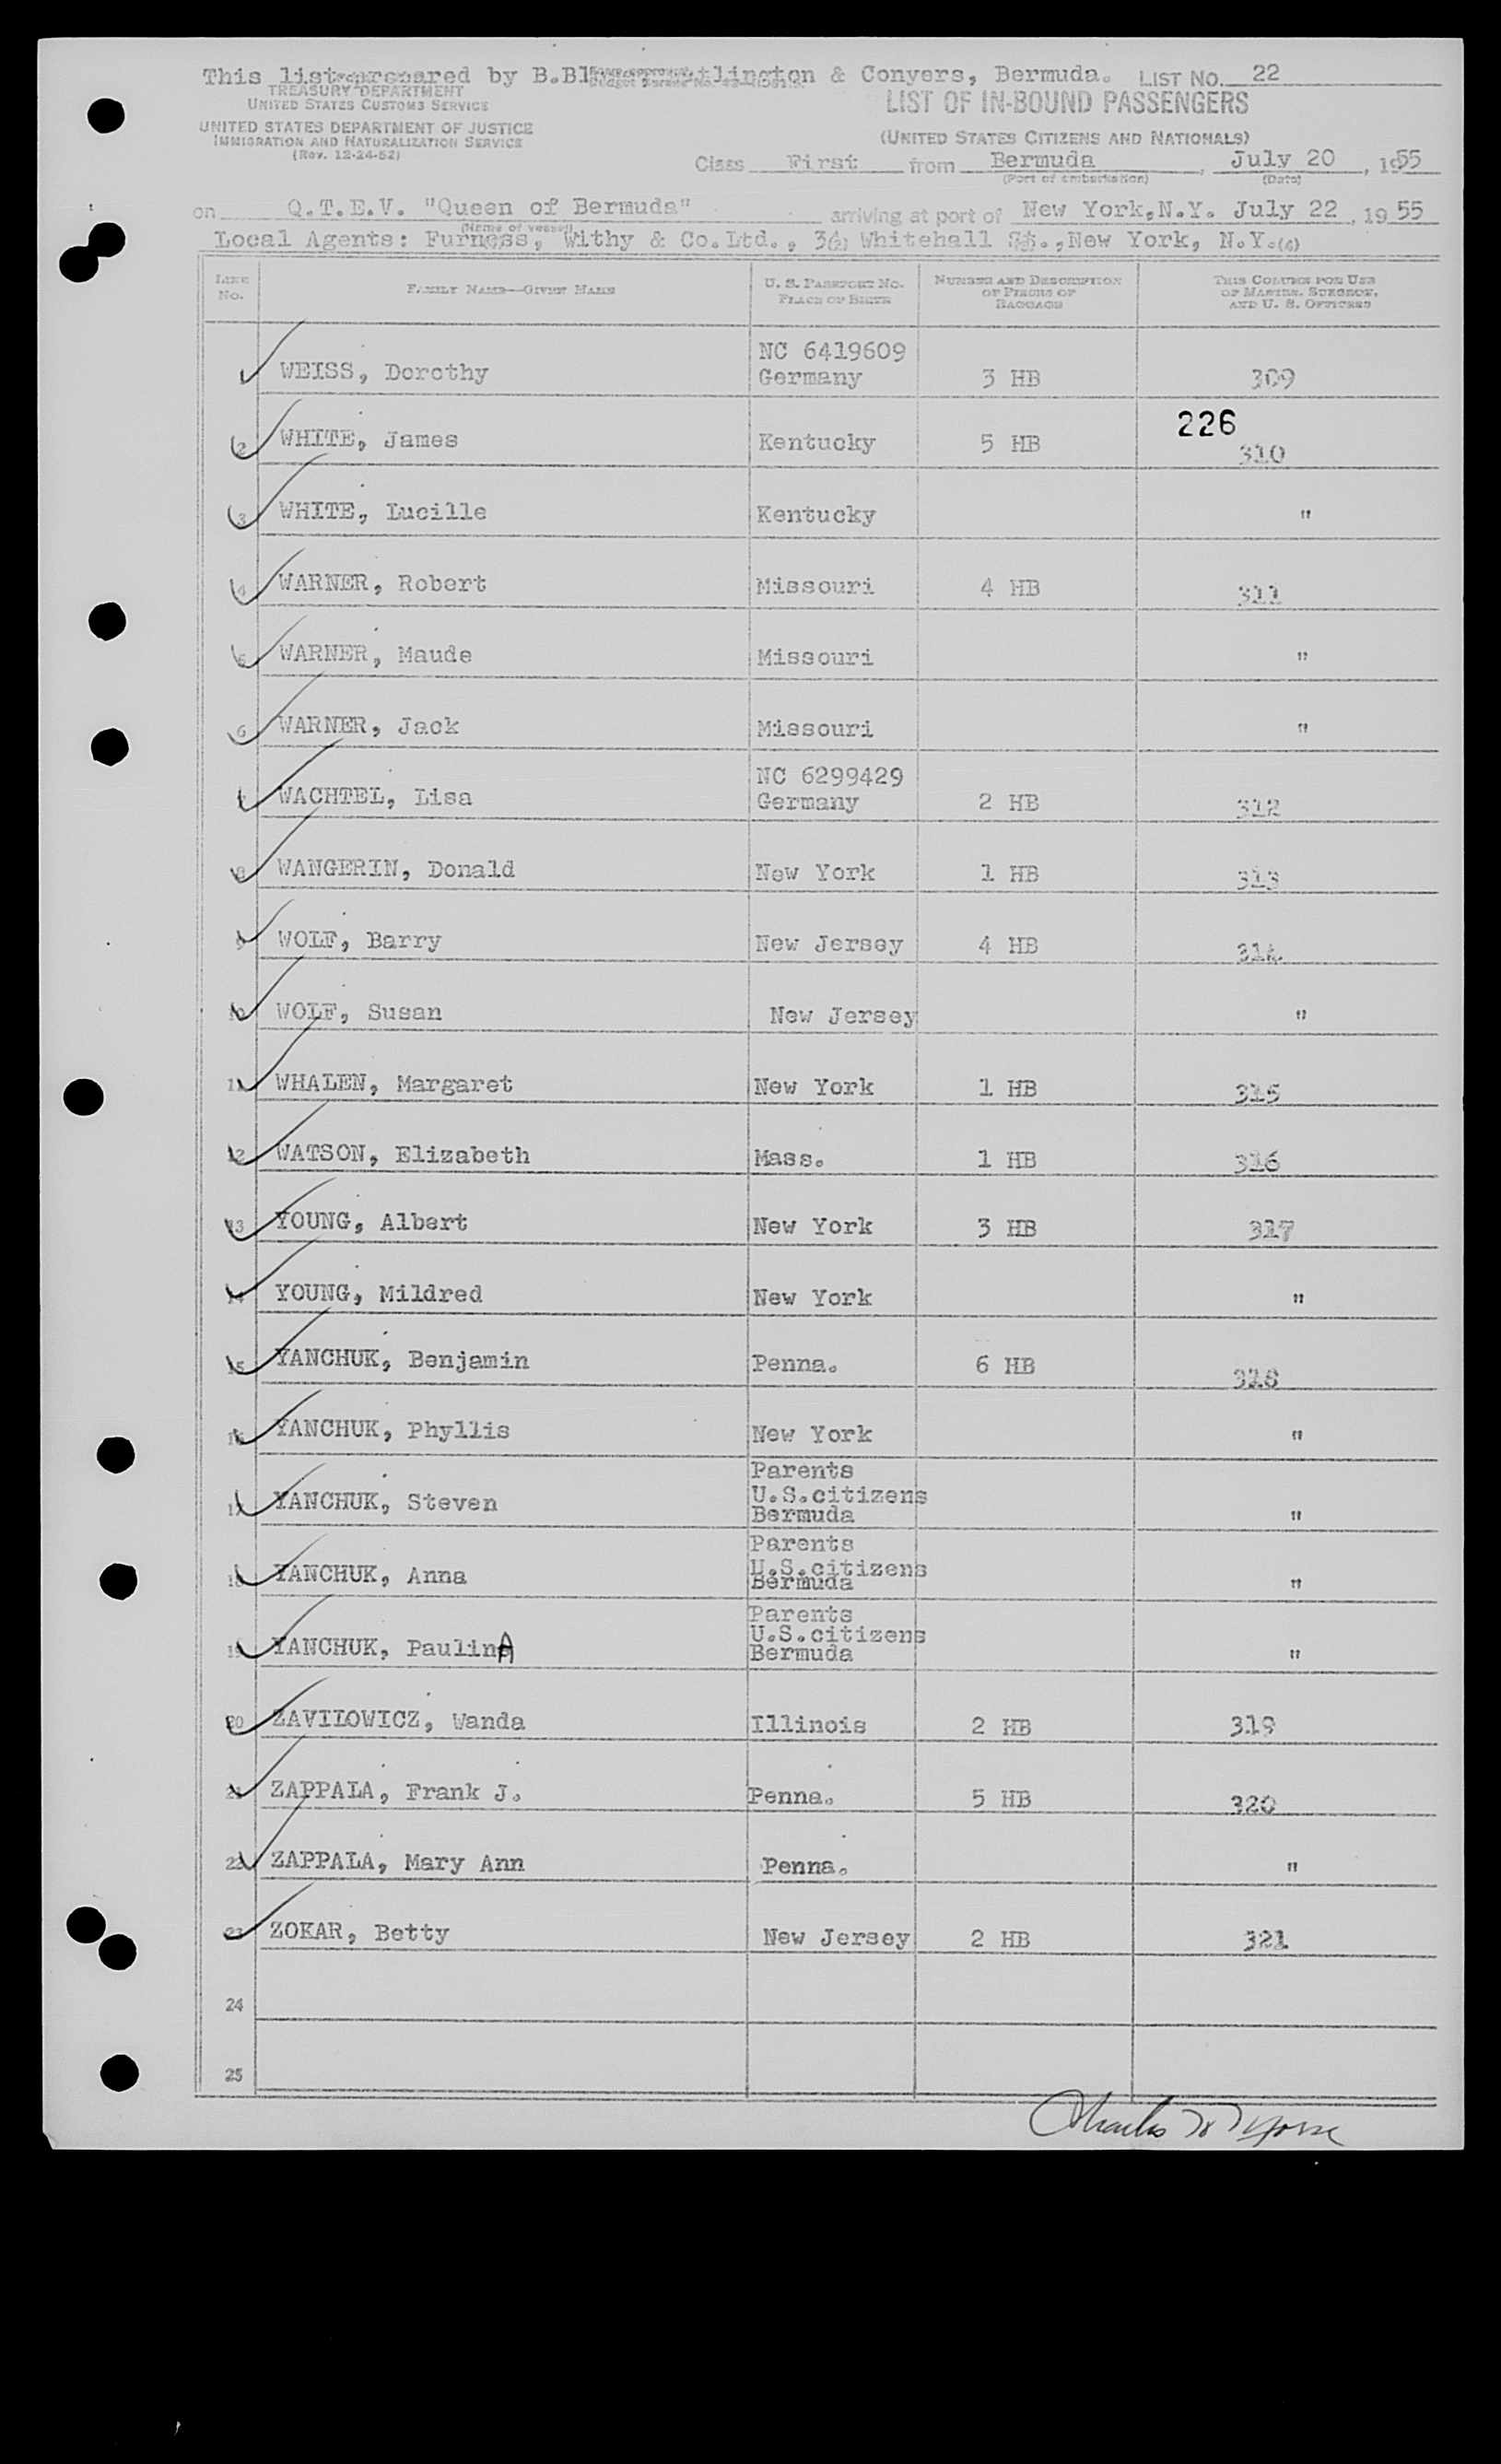 This list prepared by B.Bl tlington & Conyers, Bermuda. LIST NO. 22
TREASURY DEPARTMENT
UNITED STATES CUSTOMS SERVICE
LIST OF IN-BOUND PASSENGERS
UNITED STATES DEPARTMENT OF JUSTICE
IMMIGRATION AND NATURALIZATION SERVICE
(Rev. 12-24-52)
(UNITED STATES CITIZENS AND NATIONALS)
Class First from Bermuda, July 20, 1955
(Port of embarkation) (Date)
on Q.T.E.V. "Queen of Bermuda" arriving at port of New York,N.Y. July 22, 1955
(Name of vessel)
Local Agents: Furness, Withy & Co.Ltd., 34, Whitehall St.,New York, N.Y.(4)
LINE No. FAMILY NAME—GIVEN NAME U. S. PASSPORT NO. PLACE OF BIRTH NUMBER AND DESCRIPTION OF PIECES OF BAGGAGE THIS COLUMN FOR USE OF MASTER, SURGEON, AND U. S. OFFICERS
NC 6419609
1 WEISS, Dorothy Germany 3 HB 309
226
2 WHITE, James Kentucky 5 HB 310
3 WHITE, Lucille Kentucky "
4 WARNER, Robert Missouri 4 HB 311
5 WARNER, Maude Missouri "
6 WARNER, Jack Missouri "
NC 6299429
7 WACHTEL, Lisa Germany 2 HB 312
8 WANGERIN, Donald New York 1 HB 313
9 WOLF, Barry New Jersey 4 HB 314
10 WOLF, Susan New Jersey "
11 WHALEN, Margaret New York 1 HB 315
12 WATSON, Elizabeth Mass. 1 HB 316
13 YOUNG, Albert New York 3 HB 317
14 YOUNG, Mildred New York "
15 YANCHUK, Benjamin Penna. 6 HB 318
16 YANCHUK, Phyllis New York "
Parents
U.S.citizens
17 YANCHUK, Steven Bermuda "
Parents
U.S.citizens
18 YANCHUK, Anna Bermuda "
Parents
U.S.citizens
19 YANCHUK, PaulinA Bermuda "
20 ZAVILOWICZ, Wanda Illinois 2 HB 319
21 ZAPPALA, Frank J. Penna. 5 HB 320
22 ZAPPALA, Mary Ann Penna. "
23 ZOKAR, Betty New Jersey 2 HB 321
24
25
Charles